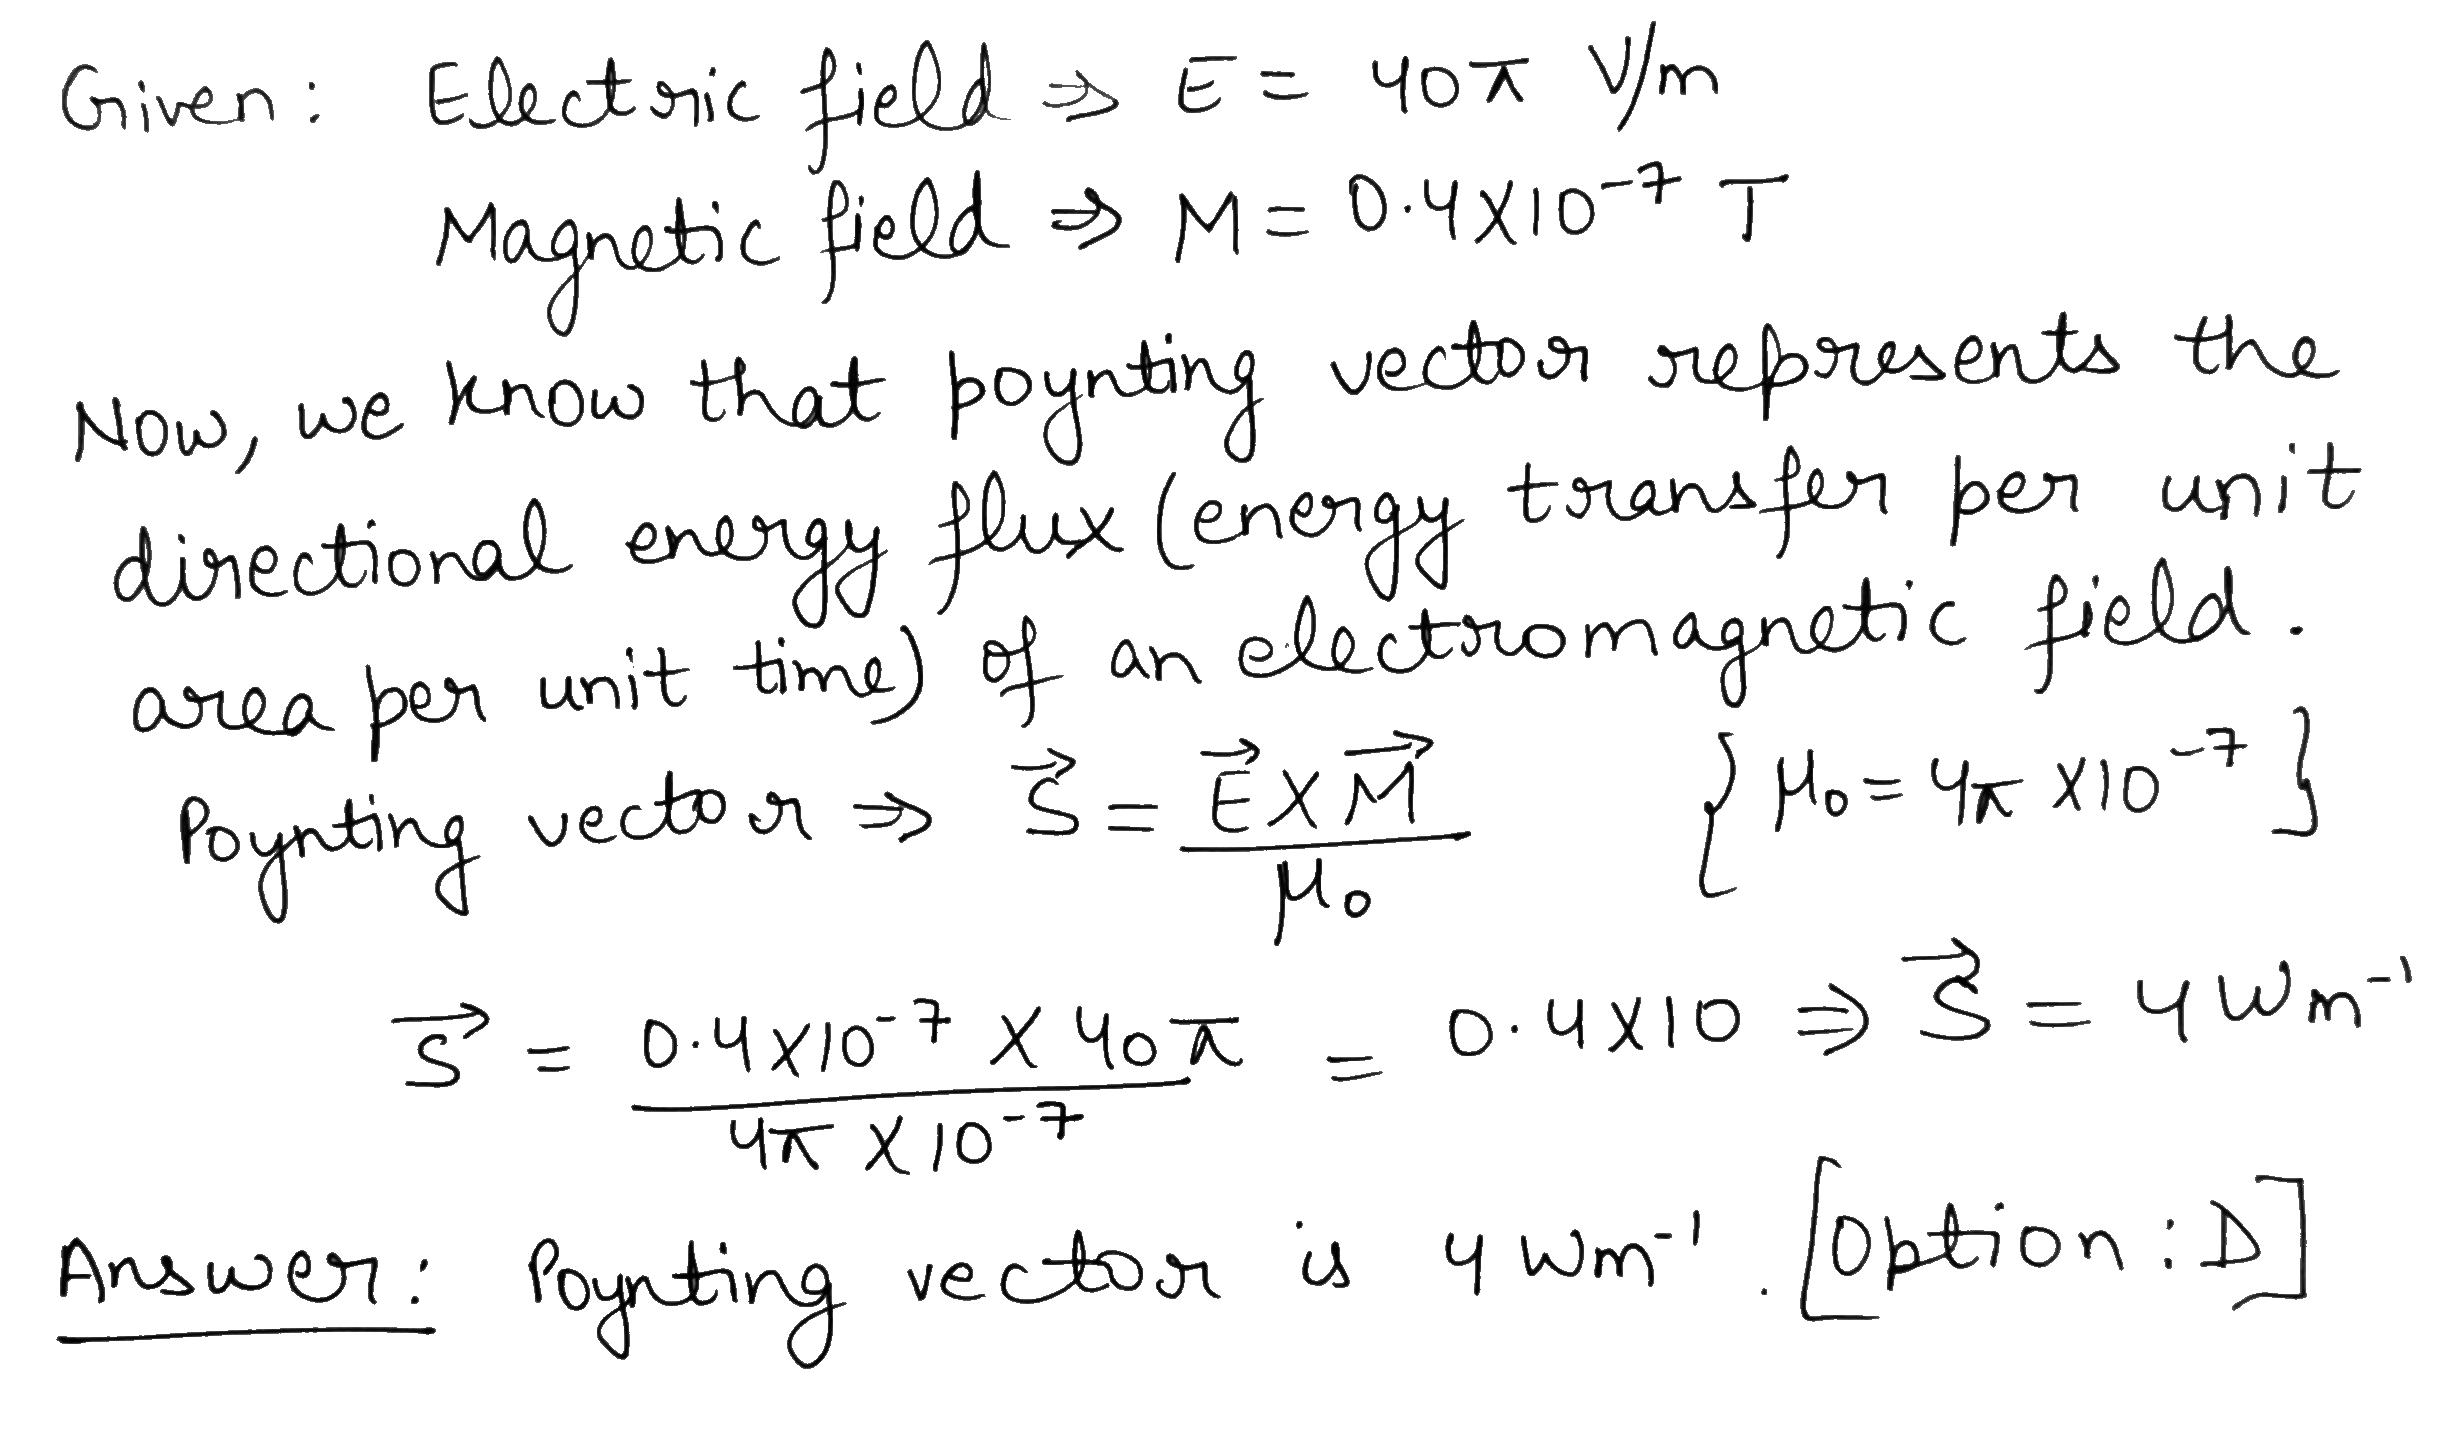 Given: Electric field ⇒ E = 40π V/m
Magnetic field ⇒ M = 0.4×10⁻⁷ T
Now, we know that poynting vector represents the
directional energy flux (energy transfer per unit
area per unit time) of an electromagnetic field.
Poynting vector ⇒ S⃗ = E⃗ × M⃗ / μ₀ {μ₀ = 4π ×10⁻⁷}
S⃗ = 0.4×10⁻⁷ × 40π / 4π × 10⁻⁷ = 0.4×10 ⇒ S⃗ = 4 Wm⁻¹
Answer: Poynting vector is 4 Wm⁻¹. [Option: D]